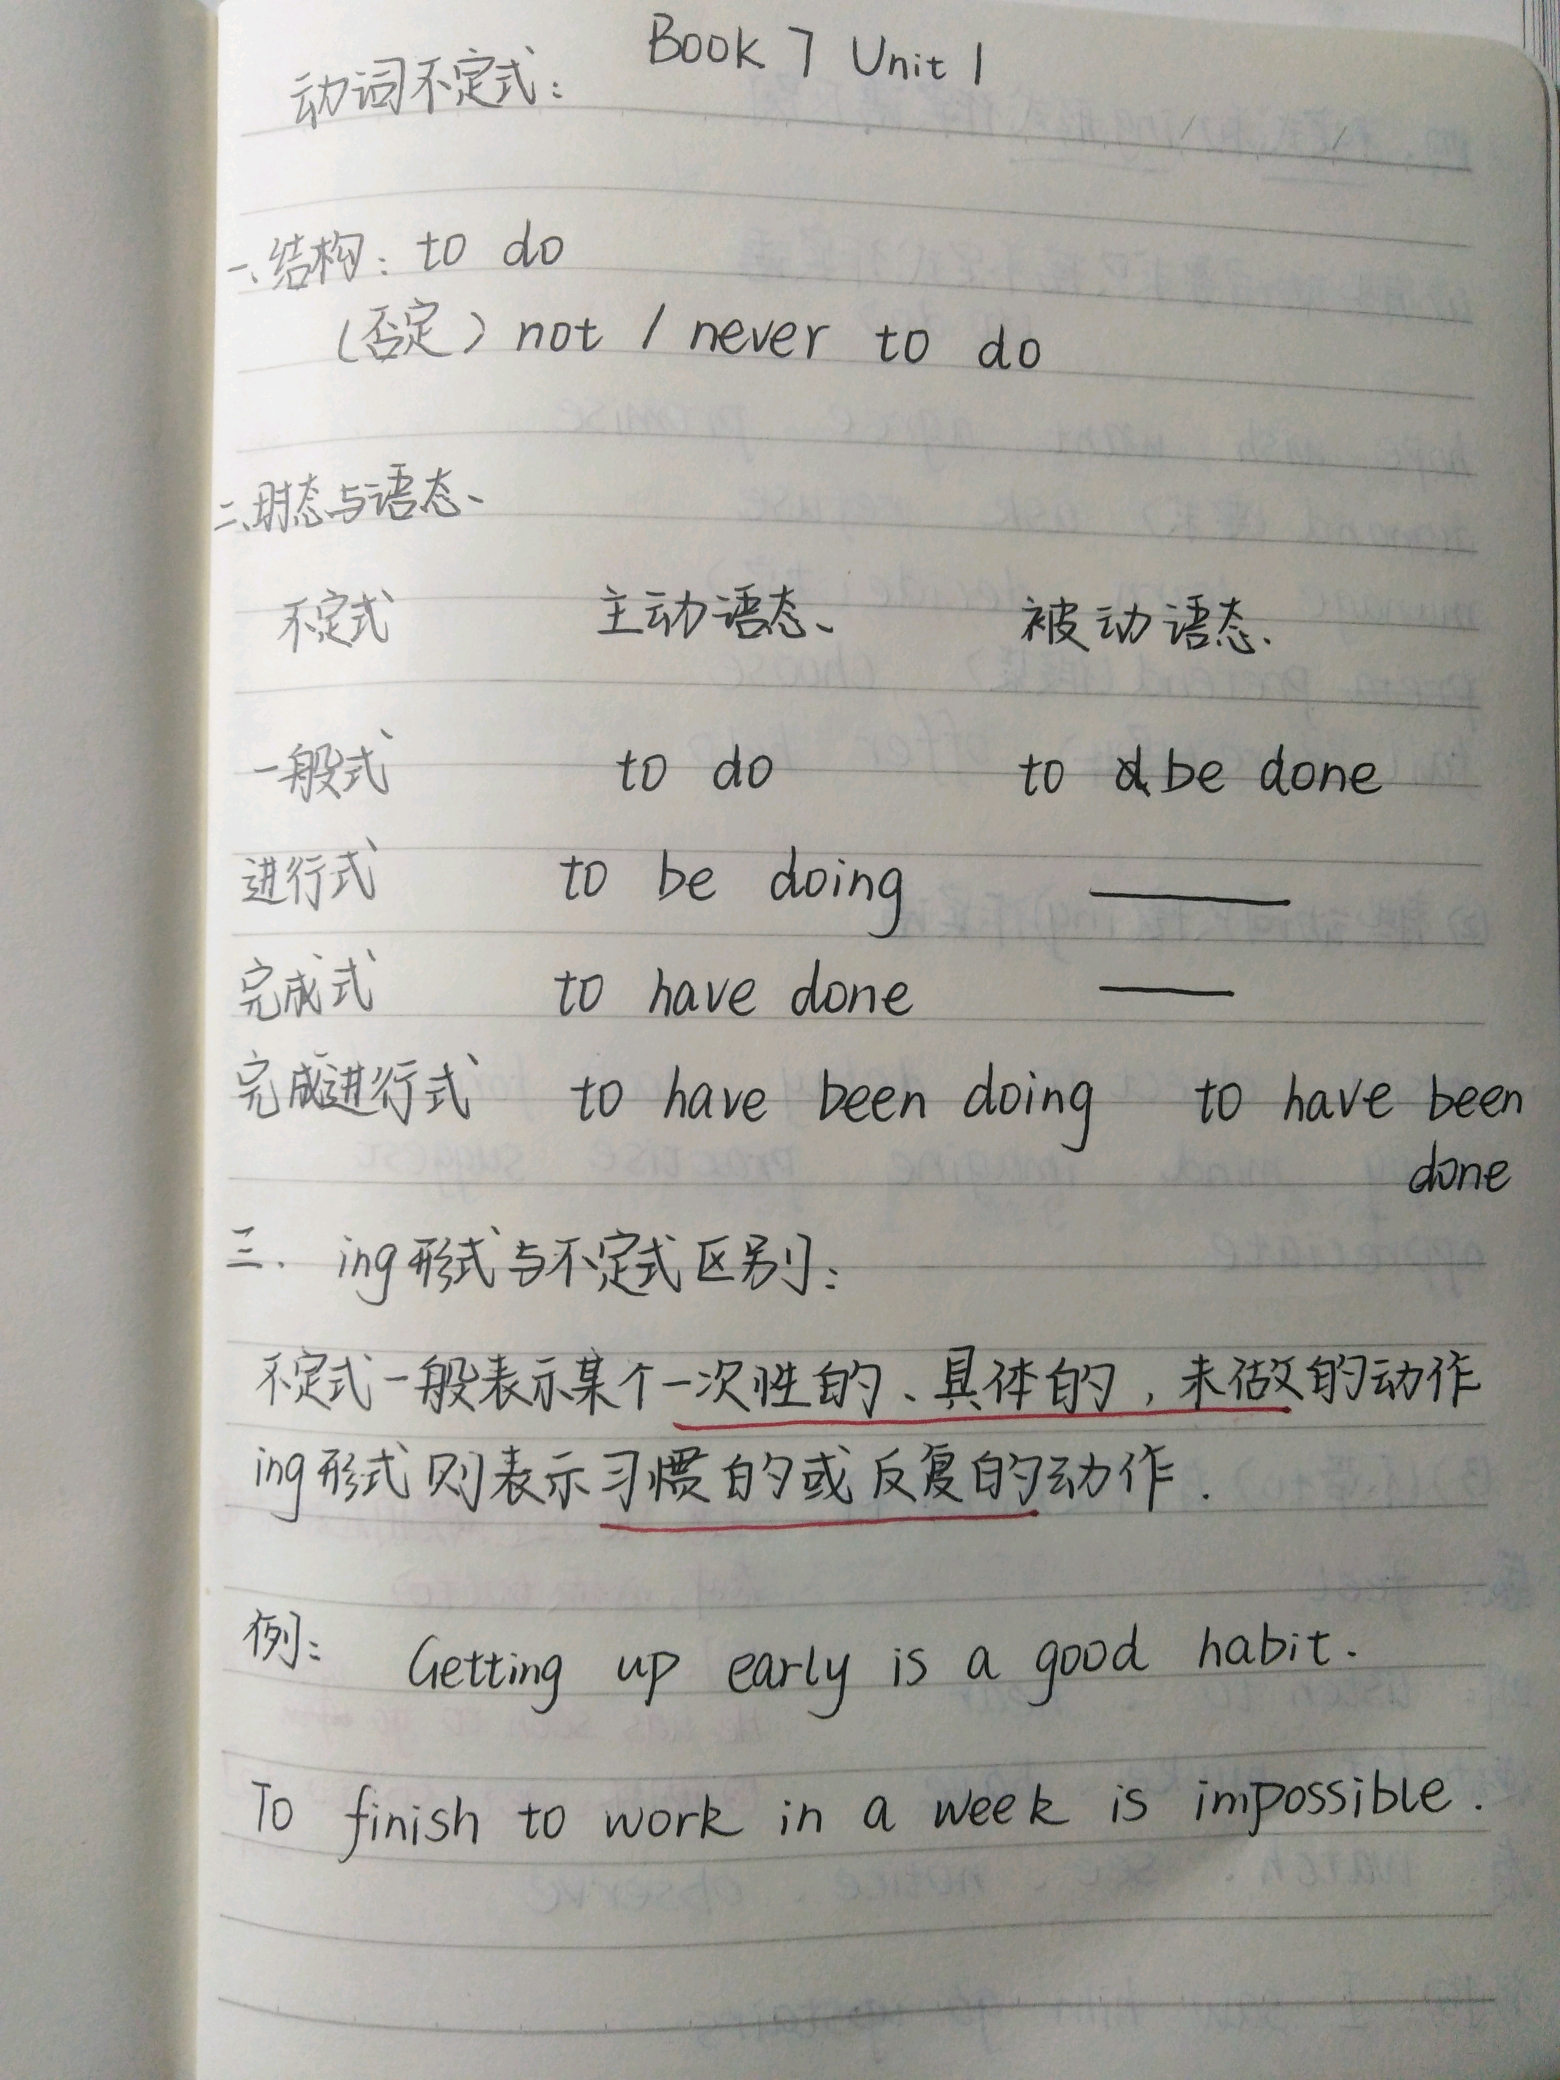 Book 7 Unit 1
动词不定式:
一、结构: to do
(否定) not / never to do
二、时态与语态、
不定式 主动语态、 被动语态、
一般式 to do to be done
进行式 to be doing ——
完成式 to have done ——
完成进行式 to have been doing to have been
done
三. ing形式与不定式区别:
不定式一般表示某个一次性的、具体的,未做的动作
ing形式则表示习惯的或反复的动作.
例: Getting up early is a good habit.
To finish to work in a week is impossible.